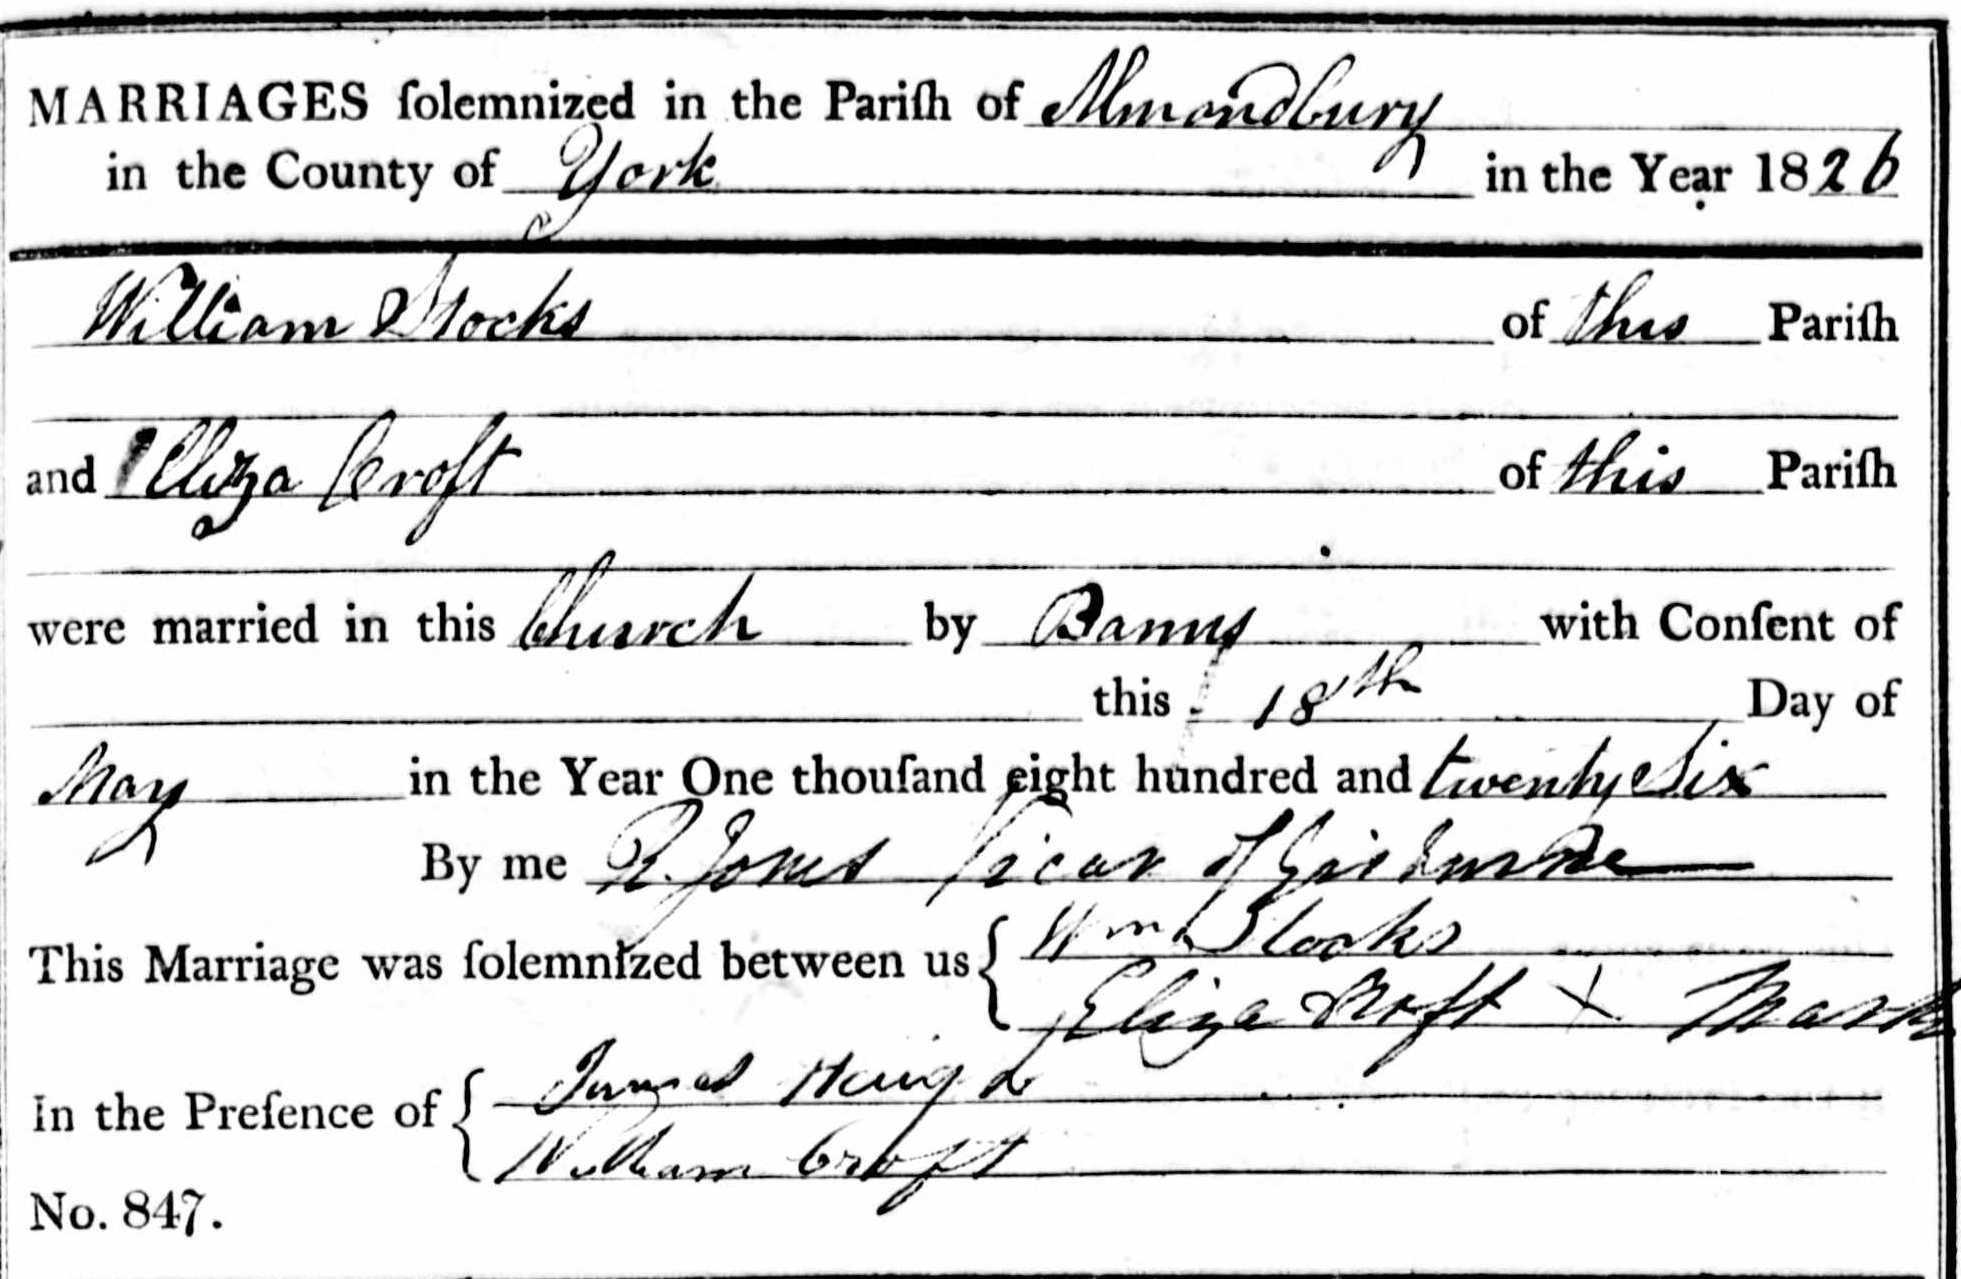 MARRIAGES ſolemnized in the Pariſh of Almondbury
in the County of York in the Year 1826
William Stocks of this Pariſh
and Eliza Croft of this Pariſh
were married in this Church by Banns with Conſent of
this 18th Day of
May in the Year One thouſand eight hundred and twenty Six
By me R. Jones Vicar of
This Marriage was ſolemnized between us Wm Stocks
Eliza Croft X Mark
In the Preſence of James Haigh
William Croft
No. 847.